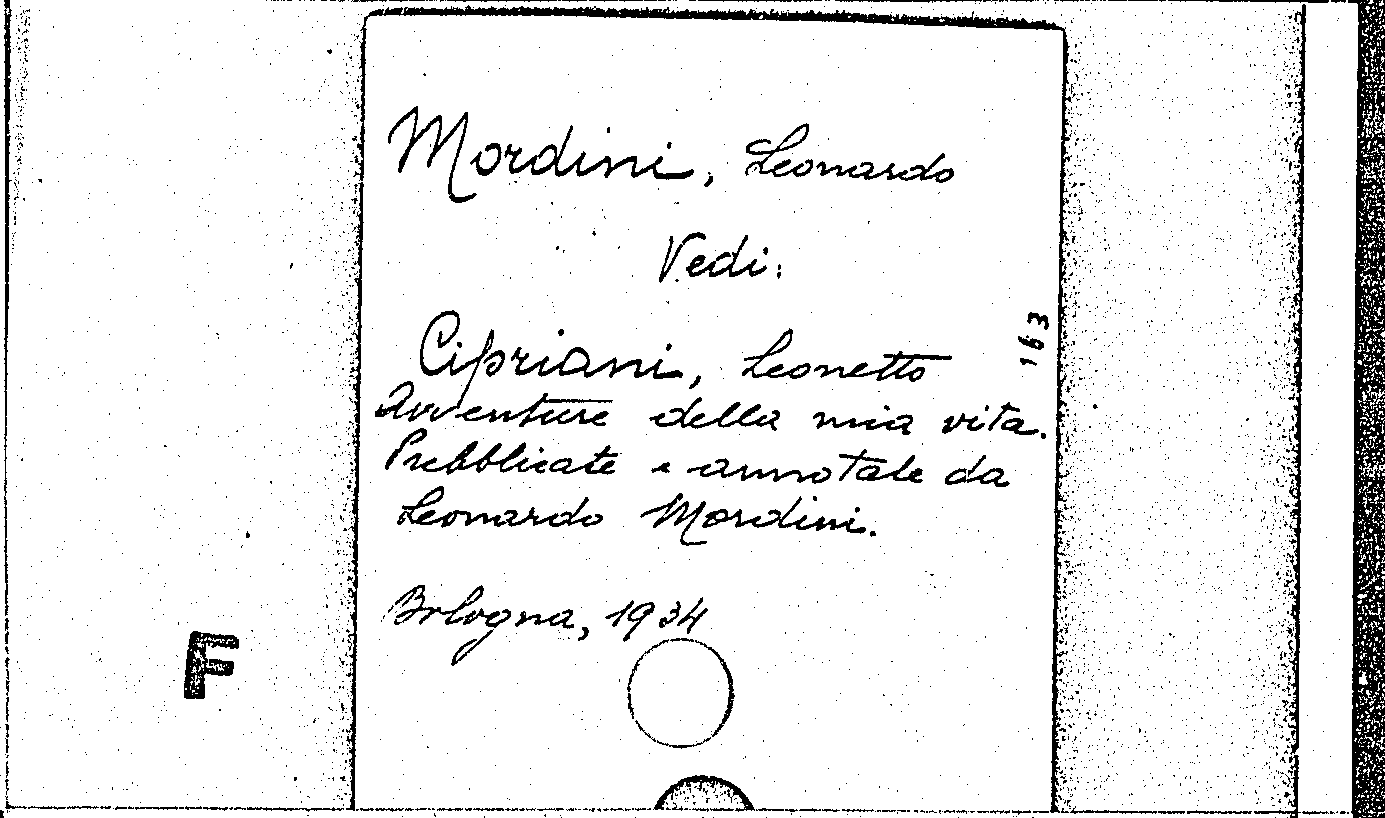 Mordini, Leonardo
Vedi:
163
Cipriani, Leonetto
Avventure della mia vita.
Pubblicate e annotate da
Leonardo Mordini.
Bologna, 1934
F